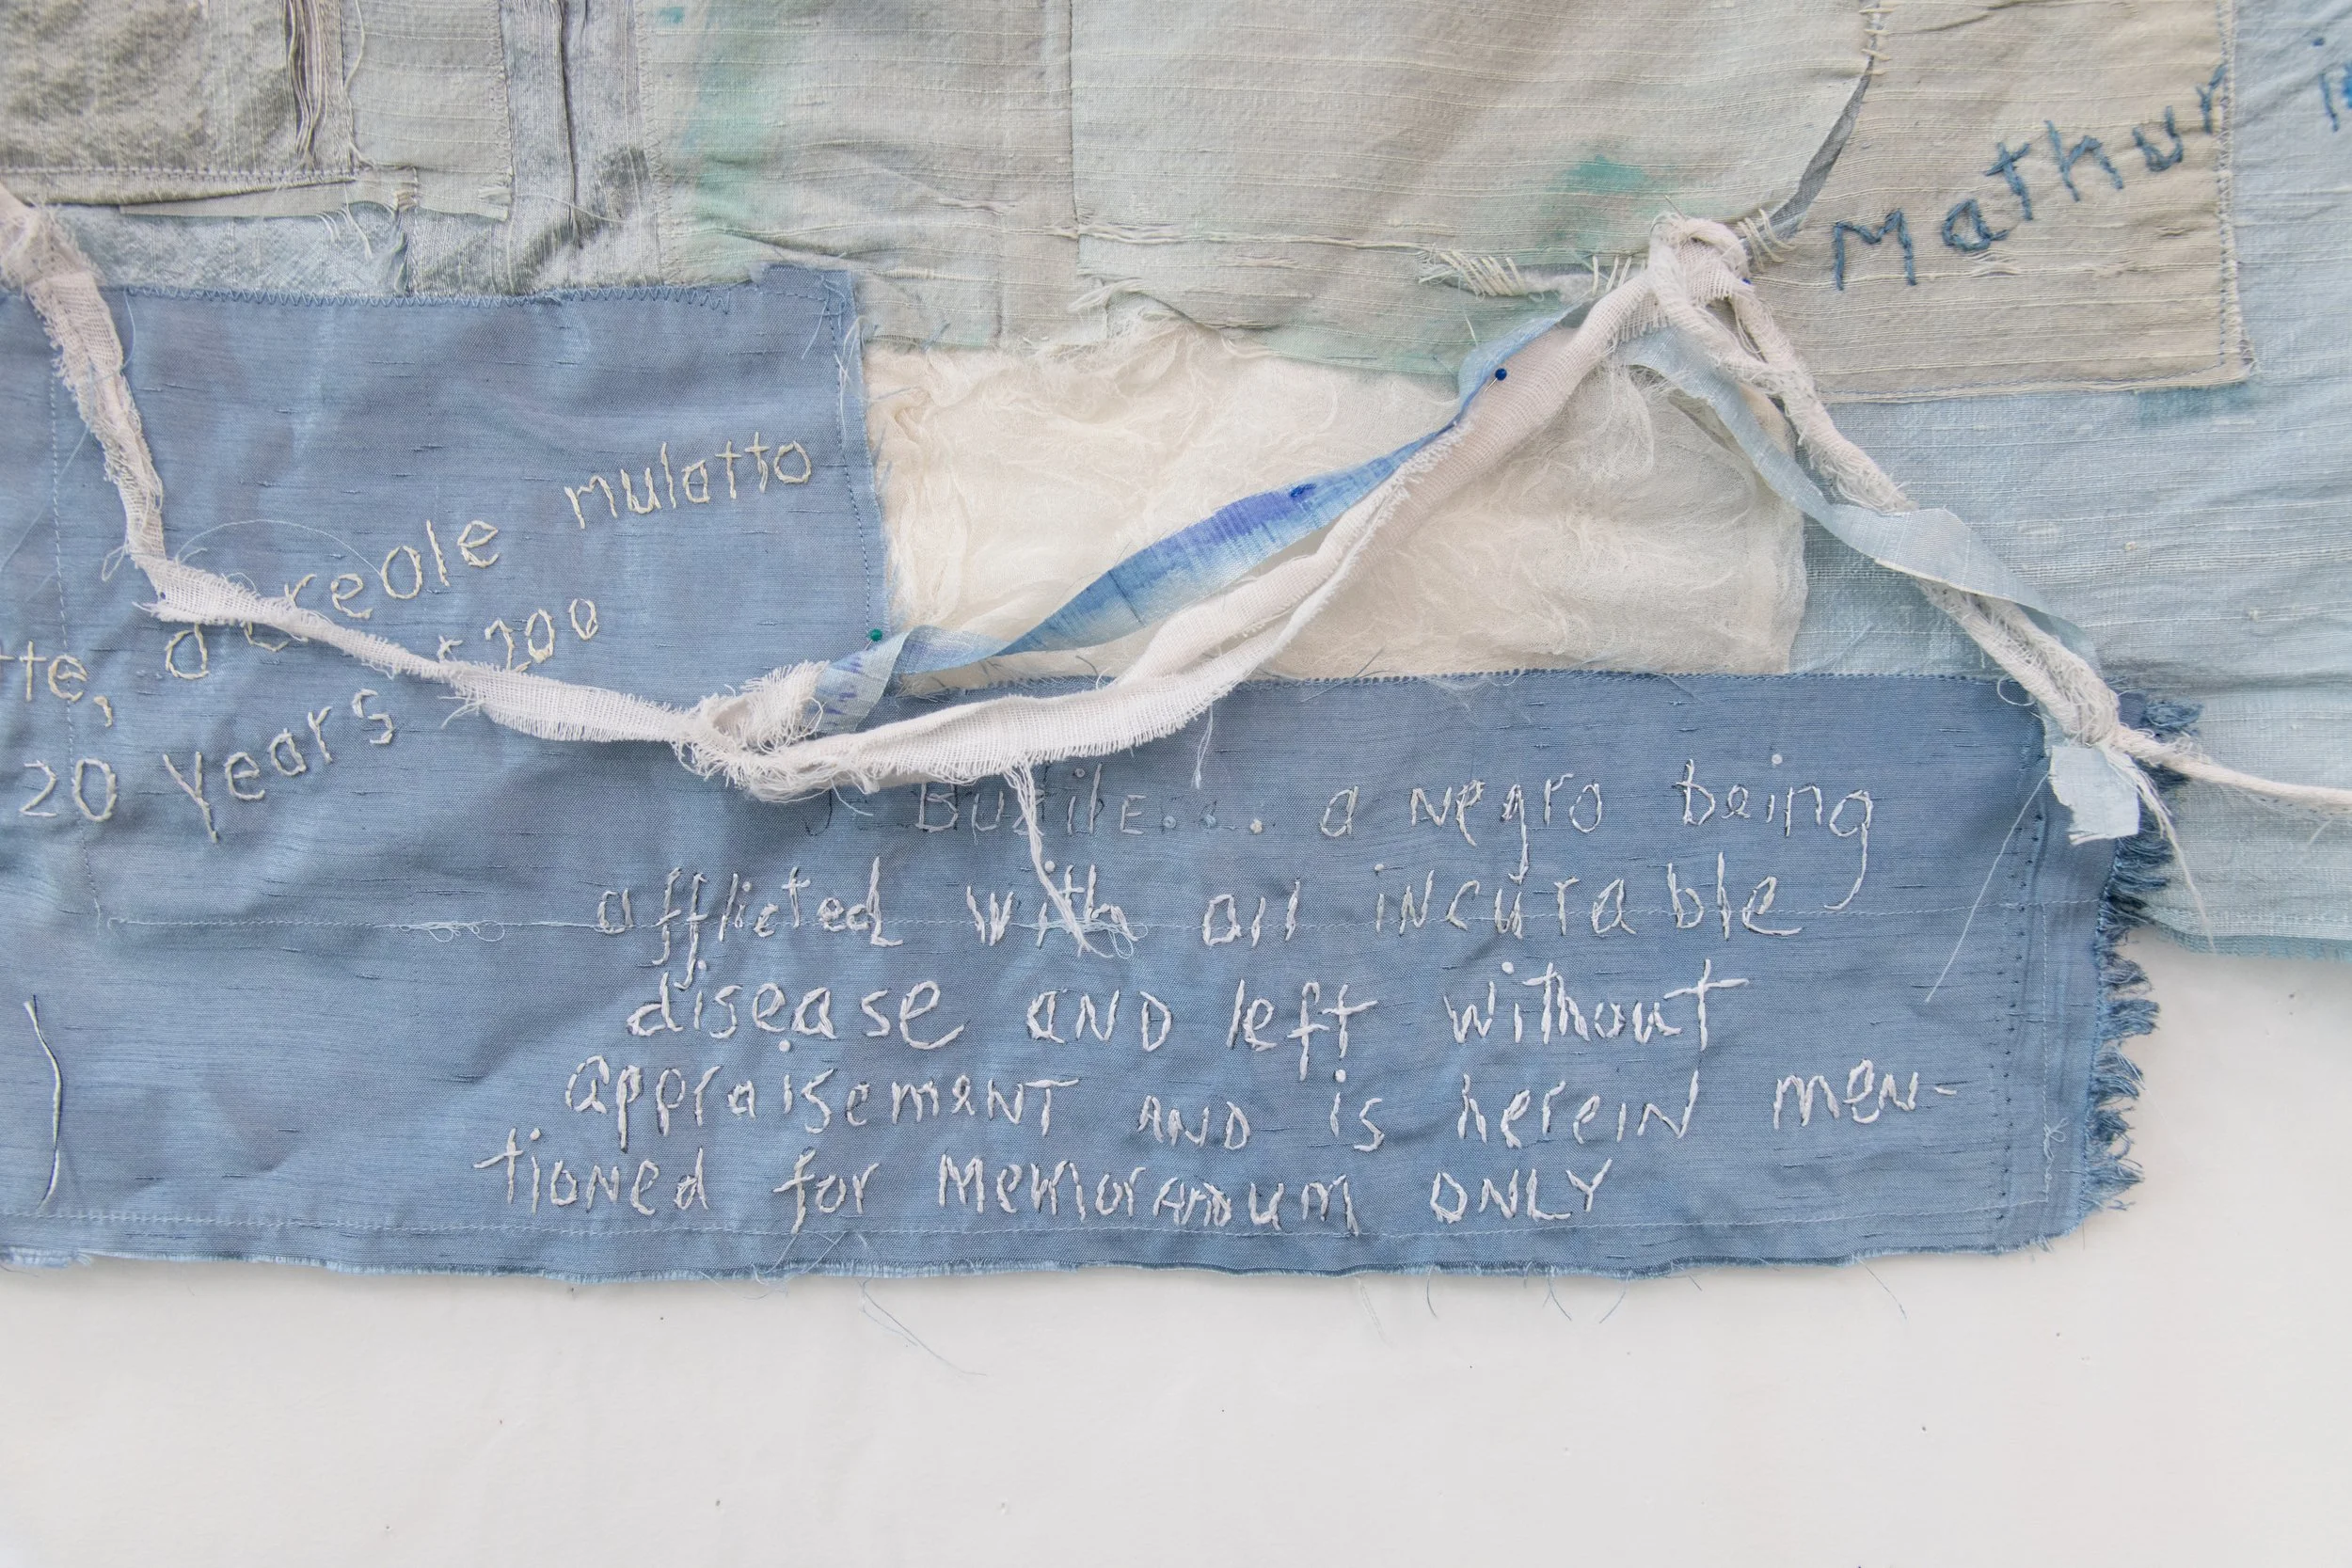 Mathur
tte, a creole mulatto
20 Years $200
a negro being
afflicted with an incurable
disease AND left without
appraisemeNT AND is hereiN men-
tioNed for MemorANDum ONLY